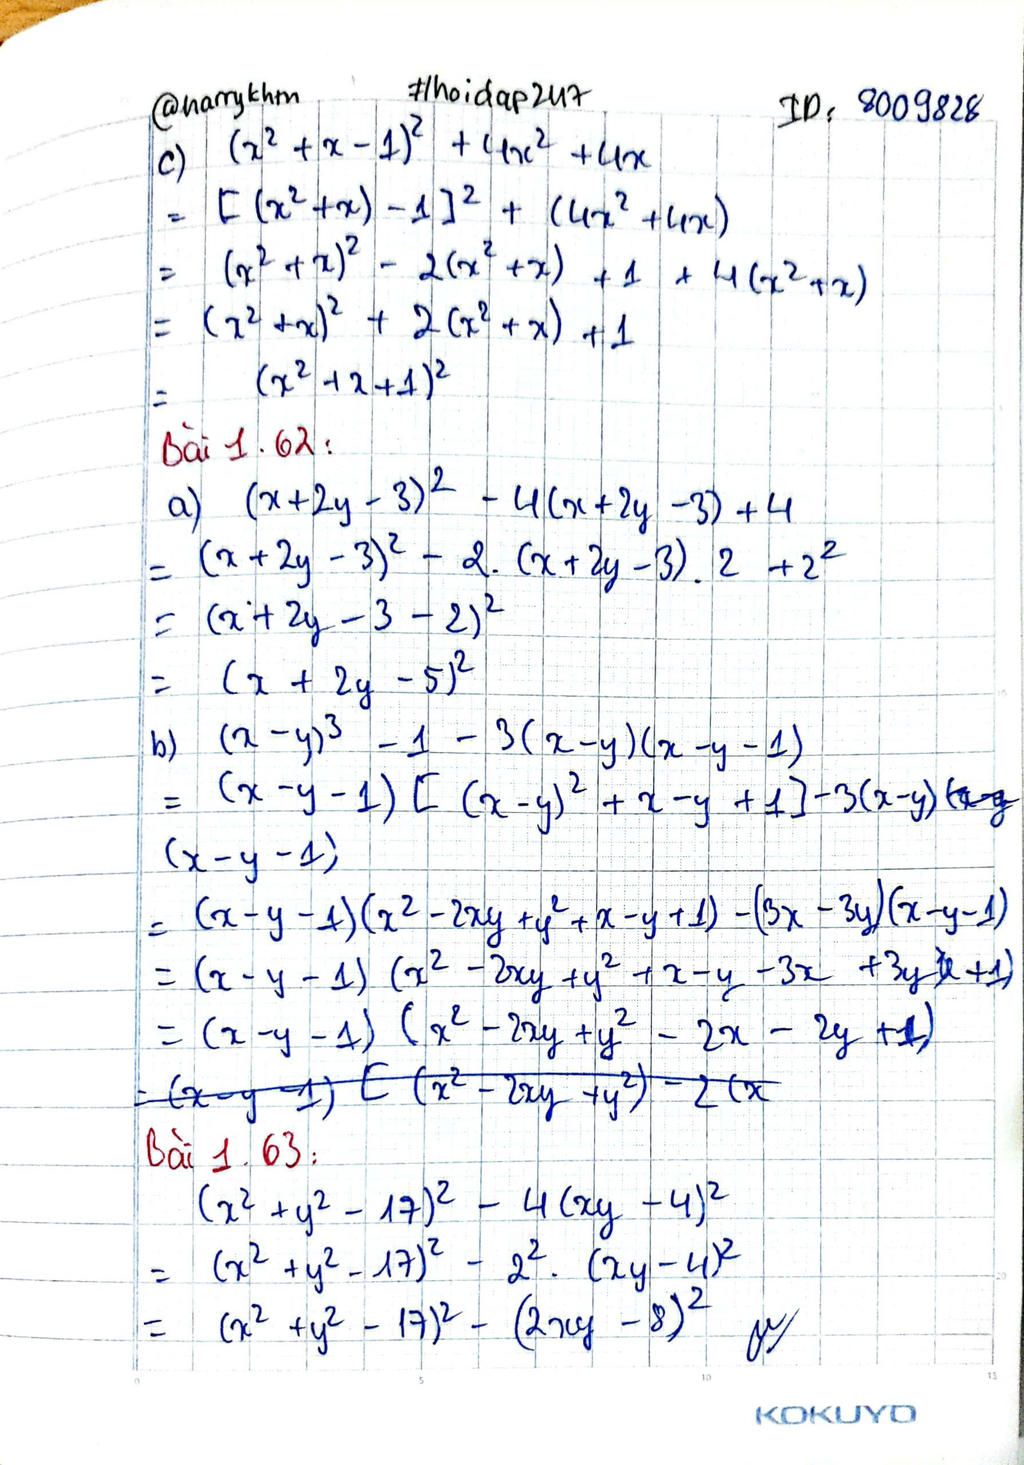 @narrykhm #hoidap247 ID: 8009828
c) (x² + x - 1)² + 4x² + 4x
= [(x² + x) - 1]² + (4x² + 4x)
= (x² + x)² - 2(x² + x) + 1 + 4(x² + x)
= (x² + x)² + 2(x² + x) + 1
= (x² + x + 1)²
Bài 1.62:
a) (x + 2y - 3)² - 4(x + 2y - 3) + 4
= (x + 2y - 3)² - 2. (x + 2y - 3). 2 + 2²
= (x + 2y - 3 - 2)²
= (x + 2y - 5)²
b) (x - y)³ - 1 - 3(x - y)(x - y - 1)
= (x - y - 1) [ (x - y)² + x - y + 1] - 3(x - y)
(x - y - 1)
= (x - y - 1)(x² - 2xy + y² + x - y + 1) - (3x - 3y)(x - y - 1)
= (x - y - 1) (x² - 2xy + y² + x - y - 3x + 3y + 1)
= (x - y - 1) (x² - 2xy + y² - 2x - 2y + 1)
= (x - y - 1) [ (x² - 2xy + y²) - 2(x
Bài 1.63:
(x² + y² - 17)² - 4(xy - 4)²
= (x² + y² - 17)² - 2². (xy - 4)²
= (x² + y² - 17)² - (2xy - 8)²
0 5 10 15
20
KOKUYO